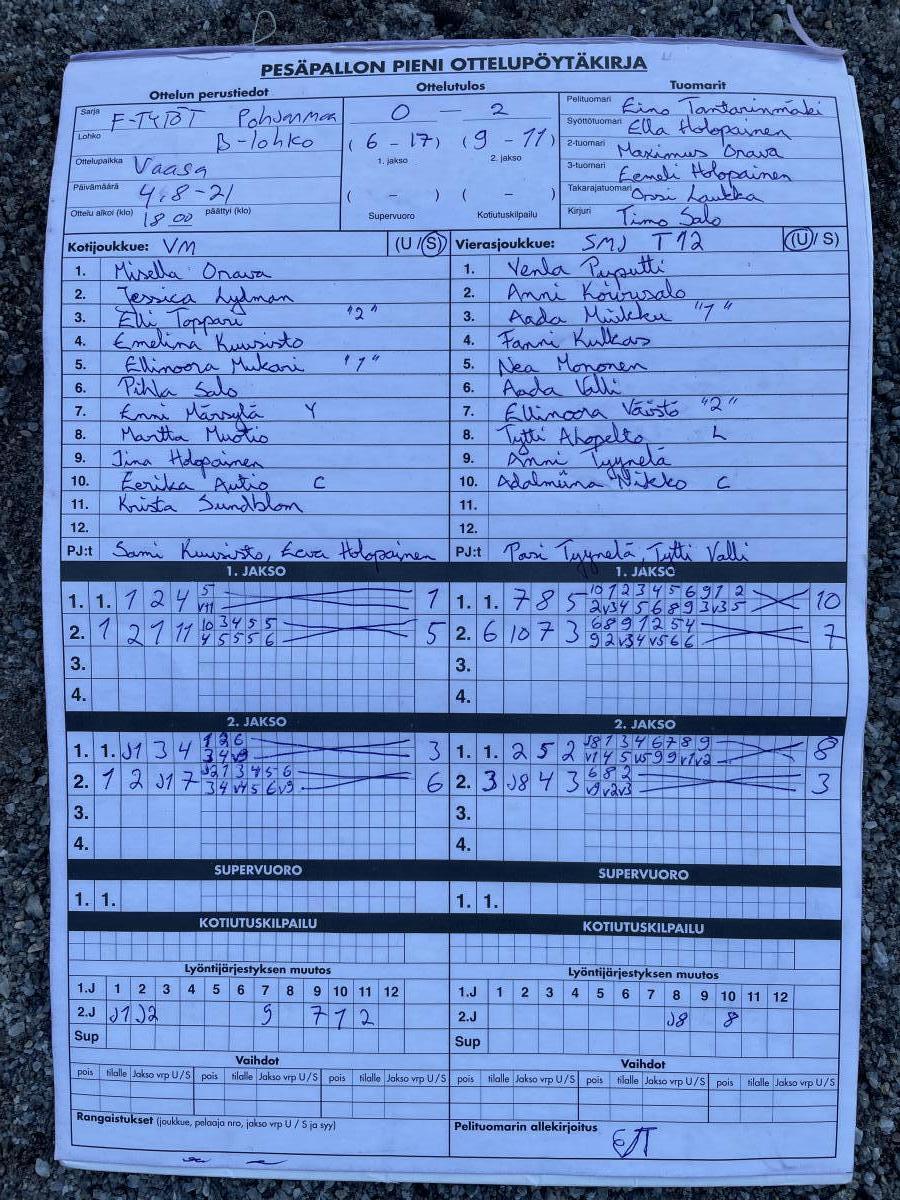 PESÄPALLON PIENI OTTELUPÖYTÄKIRJA
Ottelun perustiedot Ottelutulos Tuomarit
Sarja F-TYTÖT Pohjanmaa
Lohko B-lohko
Ottelupaikka Vaasa
Päivämäärä 4.8-21
Ottelu alkoi (klo) 18 00 päättyi (klo)
0 — 2
( 6 - 17) ( 9 - 11)
1. jakso 2. jakso
( - ) ( - )
Supervuoro Kotiutuskilpailu
Pelituomari Eino Tantarinmäki
Syöttötuomari Ella Holopainen
2-tuomari Maximus Orava
3-tuomari Eemeli Holopainen
Takarajatuomari Orsi Laukka
Kirjuri Timo Salo
Kotijoukkue: VM (U / S)
1. Misella Orava
2. Jessica Lydman
3. Elli Toppari "2"
4. Emelina Kuusisto
5. Ellinoora Mukari "1"
6. Pihla Salo
7. Enni Mänsylä Y
8. Martta Muotio
9. Iina Holopainen
10. Eerika Autio C
11. Krista Sundblom
12.
PJ:t Sami Kuusisto, Eeva Holopainen
Vierasjoukkue: SMJ T12 (U / S)
1. Venla Puputti
2. Anni Koivusalo
3. Aada Miikku "1"
4. Fanni Kulkas
5. Nea Mononen
6. Aada Valli
7. Ellinoora Väistö "2"
8. Tytti Ahopelto L
9. Anni Tyynelä
10. Adalmiina Nikko C
11.
12.
PJ:t Pasi Tyynelä, Tytti Valli
1. JAKSO
1. 1. 1 2 4 5 1
v11
2. 1 2 1 11 10 3 4 5 5 5
4 5 5 5 6
3.
4.
1. JAKSO
1. 1. 7 8 5 10 1 2 3 4 5 6 9 1 2 10
2 v3 4 5 6 8 9 3 v3 5
2. 6 10 7 3 6 8 9 1 2 5 4 7
9 2 v3 4 v5 6 6
3.
4.
2. JAKSO
1. 1. J1 3 4 1 2 6 3
3 4 v9
2. 1 2 J1 7 J2 1 3 4 5 6 6
3 4 v4 5 6 v9
3.
4.
2. JAKSO
1. 1. 2 5 2 J8 1 3 4 6 7 8 9 8
v1 4 5 v5 9 9 v1 v2
2. 3 J8 4 3 6 8 2 3
v9 v2 v3
3.
4.
SUPERVUORO SUPERVUORO
1. 1. 1. 1.
KOTIUTUSKILPAILU KOTIUTUSKILPAILU
Lyöntijärjestyksen muutos
1.J 1 2 3 4 5 6 7 8 9 10 11 12
2.J J1 J2 9 7 1 2
Sup
Lyöntijärjestyksen muutos
1.J 1 2 3 4 5 6 7 8 9 10 11 12
2.J J8 8
Sup
Vaihdot Vaihdot
pois tilalle Jakso vrp U / S pois tilalle Jakso vrp U / S pois tilalle Jakso vrp U / S
pois tilalle Jakso vrp U / S pois tilalle Jakso vrp U / S pois tilalle Jakso vrp U / S
Rangaistukset (joukkue, pelaaja nro, jakso vrp U / S ja syy)
Pelituomarin allekirjoitus